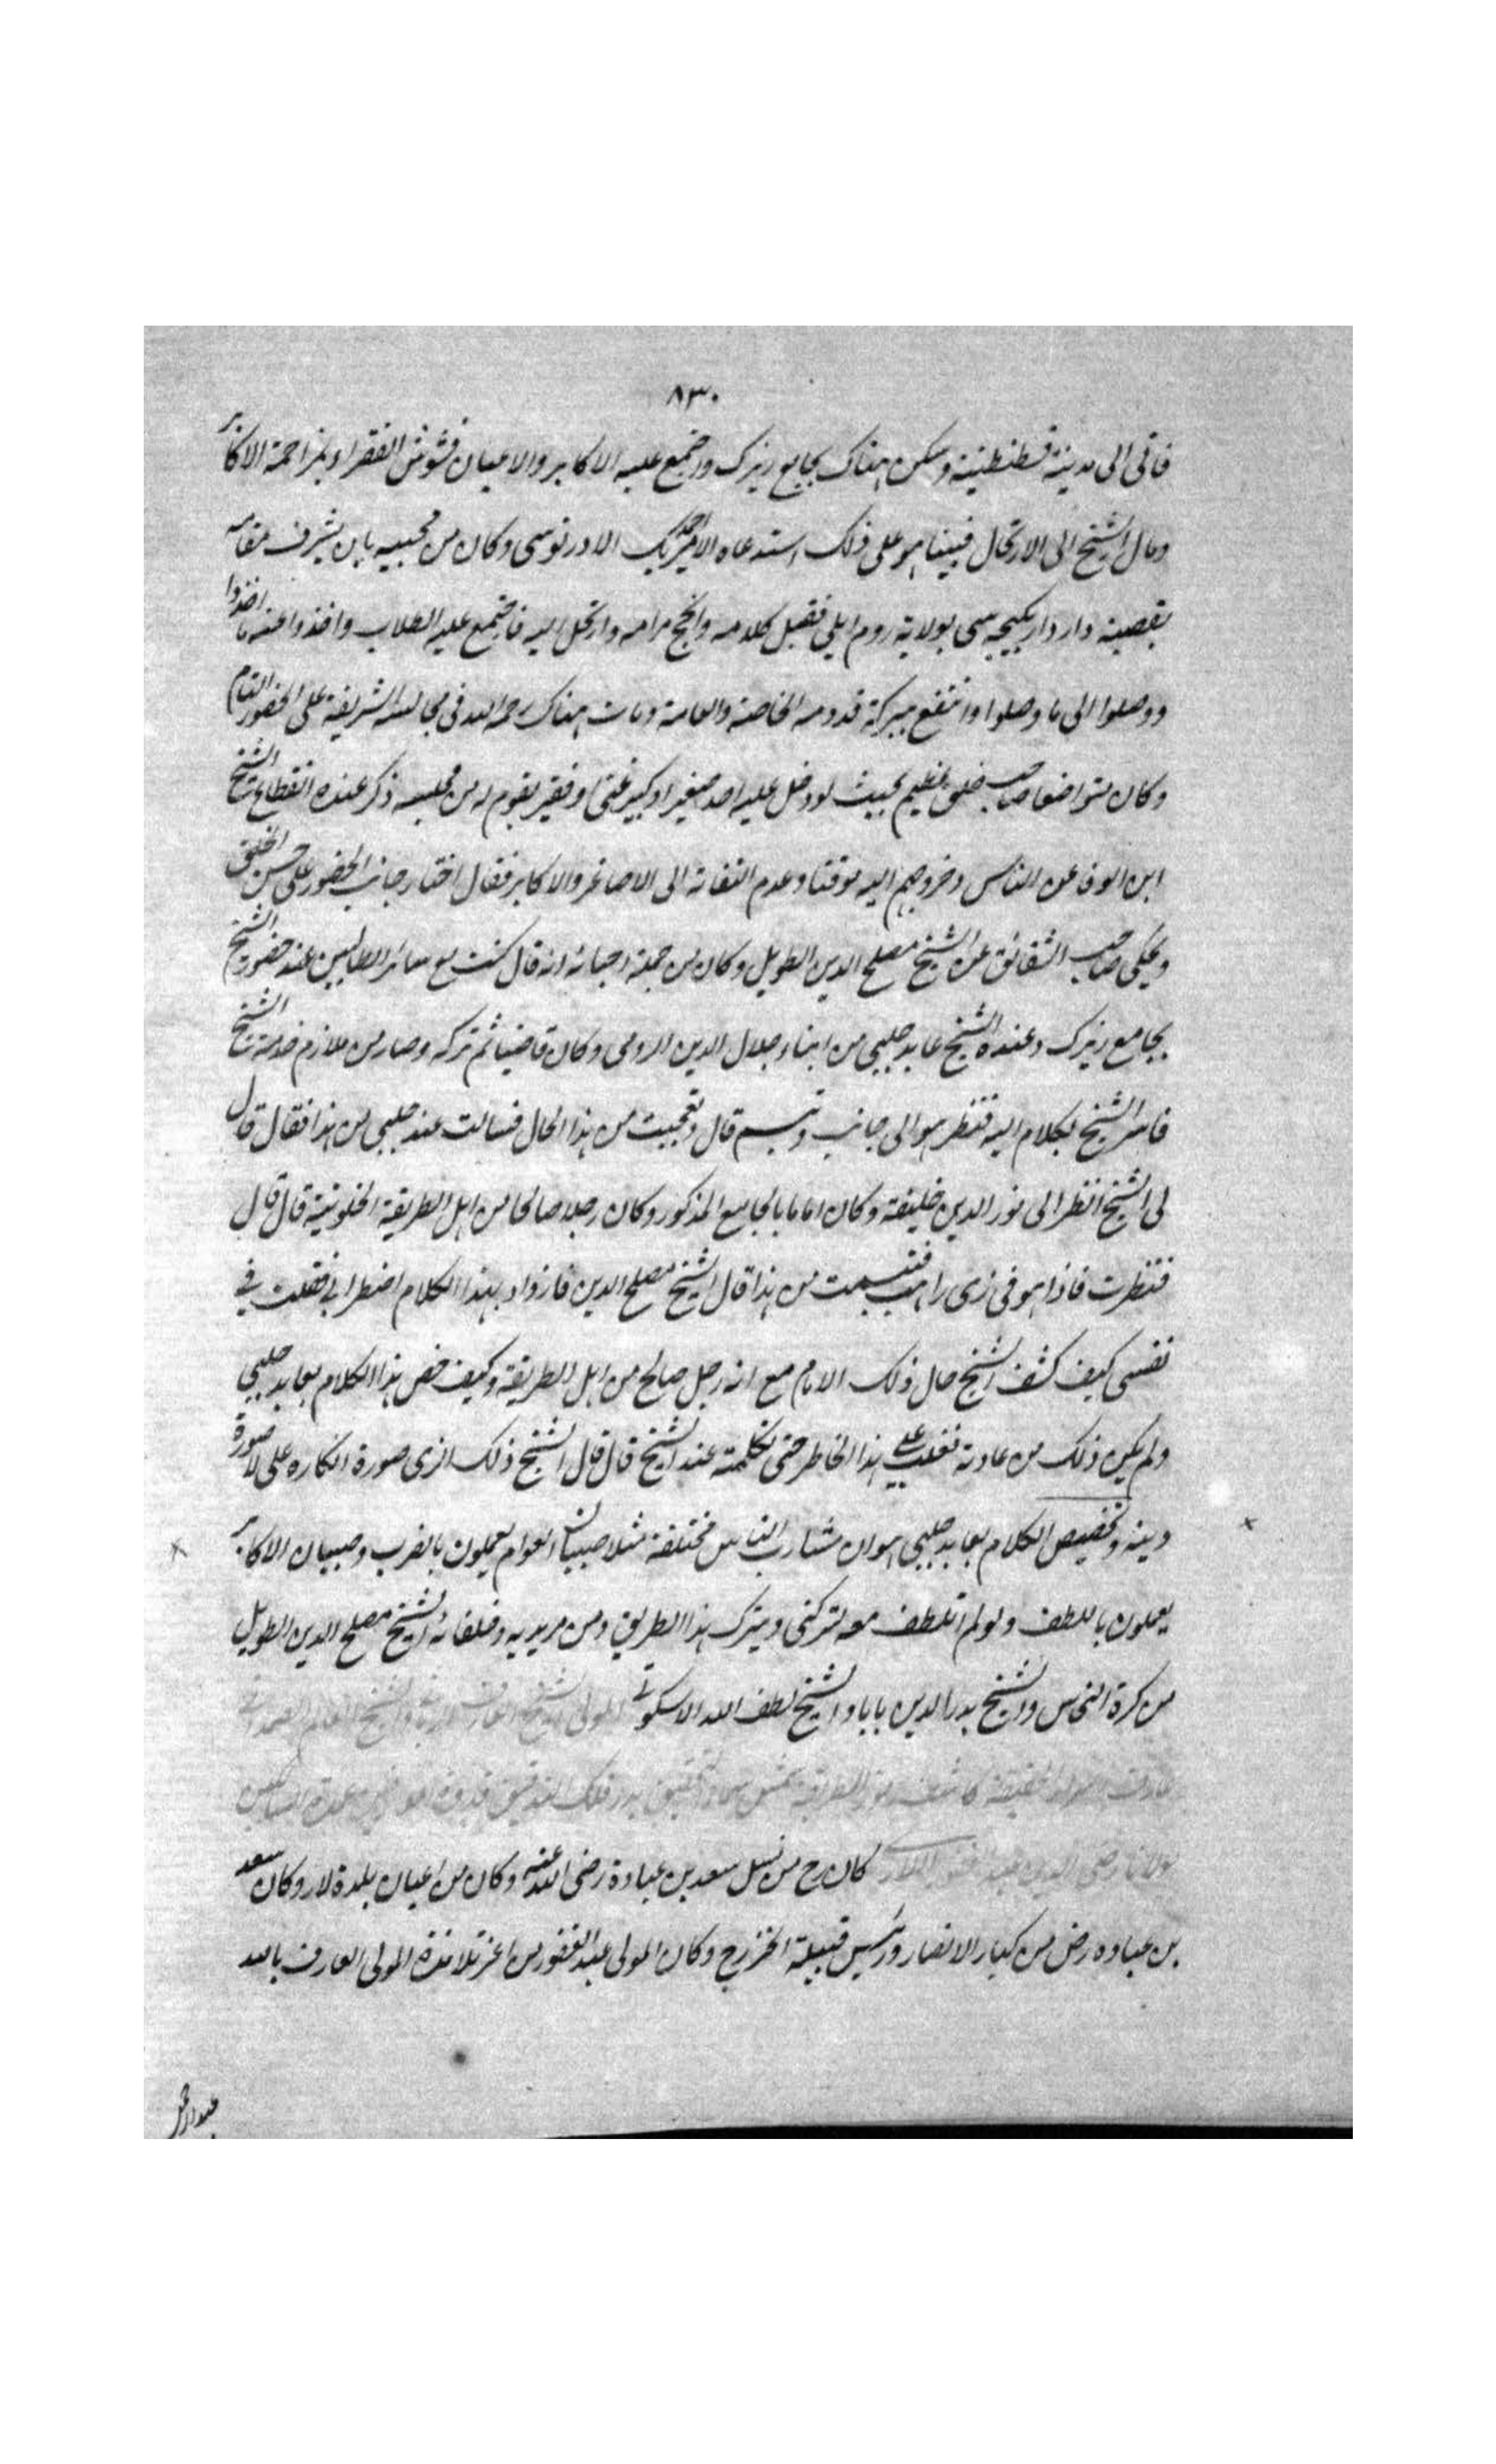 ٨٣٠
فاتى الى مدينة قسطنطينية وسكن هناك بجامع زيرك واجتمع عليه الاكابر والاعيان فشوش الفقراء بمزاحمة الاكابر
ومال الشيخ الى الارتحال فبينا هو على ذلك استدعاه الامير احمد بك الاورنوسى وكان من محبيه بان يشرف مقامه
بقصبة واردار يكيجه سى بولاية روم ايلى فقبل كلامه وانجح مرامه وارتحل اليه فاجتمع عليه الطلاب واخذوا عنه ما اخذوا
ووصلوا الى ما وصلوا وانتفع ببركة قدومه الخاصة والعامة ومات هناك رحمه الله فى مجالسه الشريفة على الحضور التام
وكان متواضعا صاحب خلق عظيم بحيث لو دخل عليه احد صغير او كبير غنى او فقير يقوم له من مجلسه ذكر عنده انقطاع الشيخ
ابن الوفا عن الناس وخروجهم اليه موقتا وعدم التفاته الى الاصاغر والاكابر فقال اختار جانب الحضور على حسن الخلق
ويحكى صاحب الشقائق عن الشيخ مصلح الدين الطويل وكان من جملة احبائه انه قال كنت مع سائر الطالبين عند حضور الشيخ
بجامع زيرك وعنده الشيخ عابد چلبى من ابناء جلال الدين الرومى وكان قاضيا ثم تركه وصار من ملازم خدمة الشيخ
فاسر الشيخ بكلام اليه فنظر هو الى جانب وتبسم قال وتعجبت من هذا الحال فسالت عند چلبى من هذا فقال قال
لى الشيخ انظر الى نور الدين خليفة وكان اماما بالجامع المذكور وكان رجلا صالحا من اهل الطريقة الخلوتية قال قال
فنظرت فاذا هو فى زى راهب فتبسمت من هذا قال الشيخ مصلح الدين فازداد بهذا الكلام اضطرابى فقلت فى
نفسى كيف كشف الشيخ حال ذلك الامام مع انه رجل صالح من اهل الطريقة وكيف خص هذا الكلام بعابد چلبى
ولم يكن ذلك من عادته فغلب على هذا الخاطر حتى تكلمته عند الشيخ قال قال الشيخ ذلك الزى صورة انكاره على لا صورة
دينه وتخصيص الكلام بعابد چلبى هو ان مشارب الناس مختلفة مثلا صبيان العوام يعملون بالضرب وصبيان الاكابر
يعملون باللطف ولو لم اتلطف معه لتركنى ويترك هذا الطريق ومن مريديه وخلفائه الشيخ مصلح الدين الطويل
من كرة النحاس والشيخ بدر الدين بابا والشيخ لطف الله الاسكوبى المولى الشيخ العارف
عارف الحقيقة كاشف الطريقة شمس
مولانا رضى الدين عبد الغفور اللارى كان رح من نسل سعد بن عبادة رضى الله عنه وكان من اعيان بلدة لار وكان سعد
بن عباده رض من كبار الانصار ورئيس قبيلة الخزرج وكان المولى عبد الغفور من اعز تلامذة المولى العارف بالله
عبد الرحمن